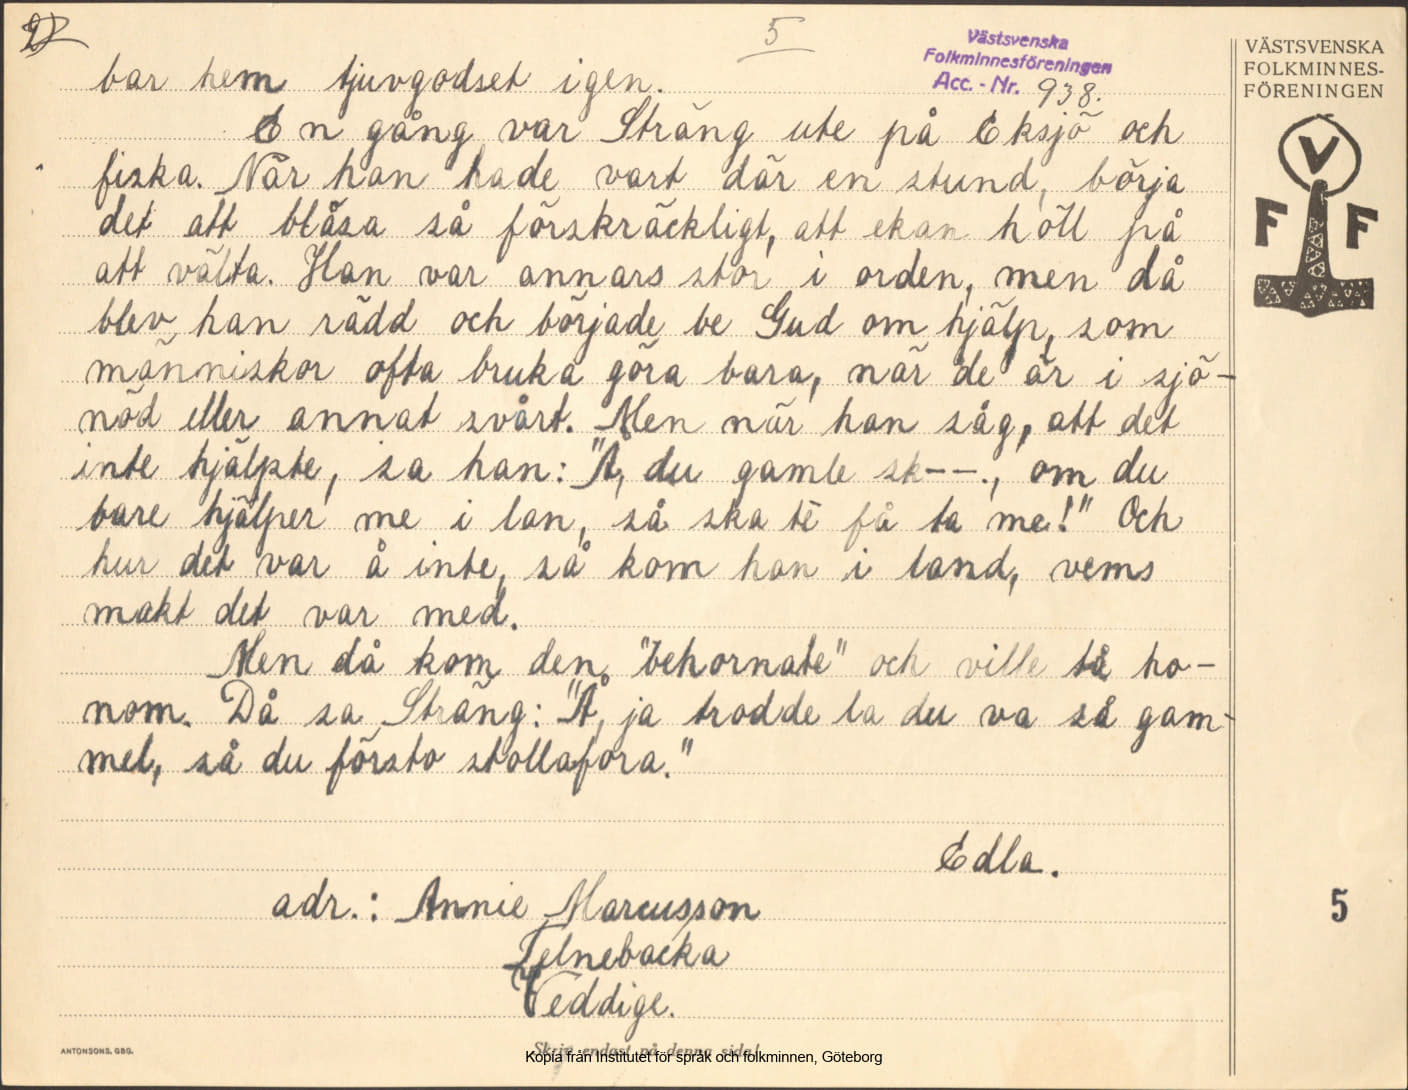 2)
5
Västsvenska
Folkminnesföreningen
Acc.-Nr. 938.
VÄSTSVENSKA
FOLKMINNES-
FÖRENINGEN
V
F F
bar hem tjuvgodset igen.
En gång var Sträng ute på Eksjö och
fiska. När han hade vart där en stund, börja
det att blåsa så förskräckligt, att ekan höll på
att välta. Han var annars stor i orden, men då
blev han rädd och började be Gud om hjälp, som
människor ofta bruka göra bara, när de är i sjö-
nöd eller annat svårt. Men när han såg, att det
inte hjälpte, sa han: "Å, du gamle sk--., om du
bare hjälper me i lan, så ska tè få ta me!" Och
hur det var å inte, så kom han i land, vems
makt det var med.
Men då kom den "behornate" och ville ta ho-
nom. Då sa Sträng: "Å, ja trodde la du va så gam-
mel, så du försto stollafora."
Edla.
adr.: Annie Marcusson
Telnebacka
Veddige.
5
ANTONSONS, GBG.
Skriv endast på denna sida!
Kopia från Institutet för språk och folkminnen, Göteborg